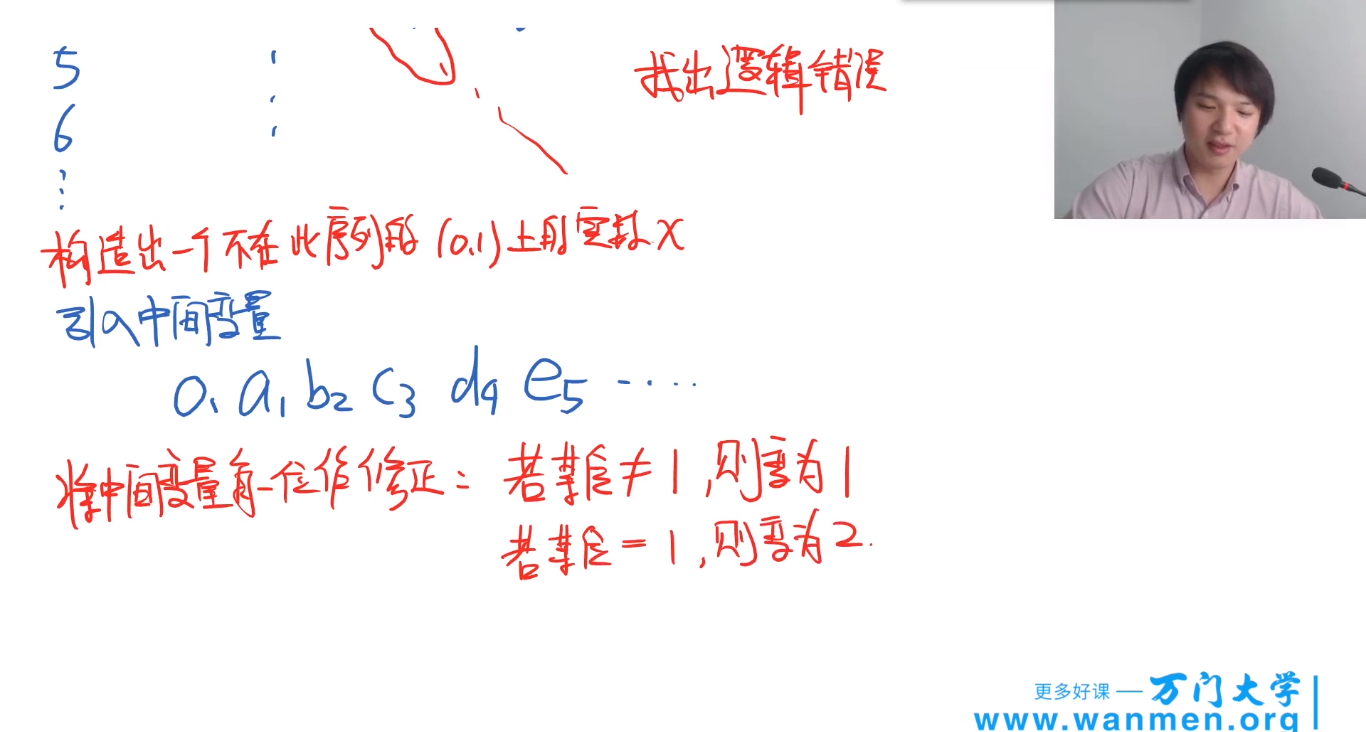 5
找出逻辑错误
6
⋮
构造出一个不在此序列的(0,1)上的实数x
引入中间变量
0.a₁b₂c₃d₄e₅·····
将中间变量每一位作修正:若某位≠1,则变为1
若某位=1,则变为2.
更多好课 — 万门大学
www.wanmen.org